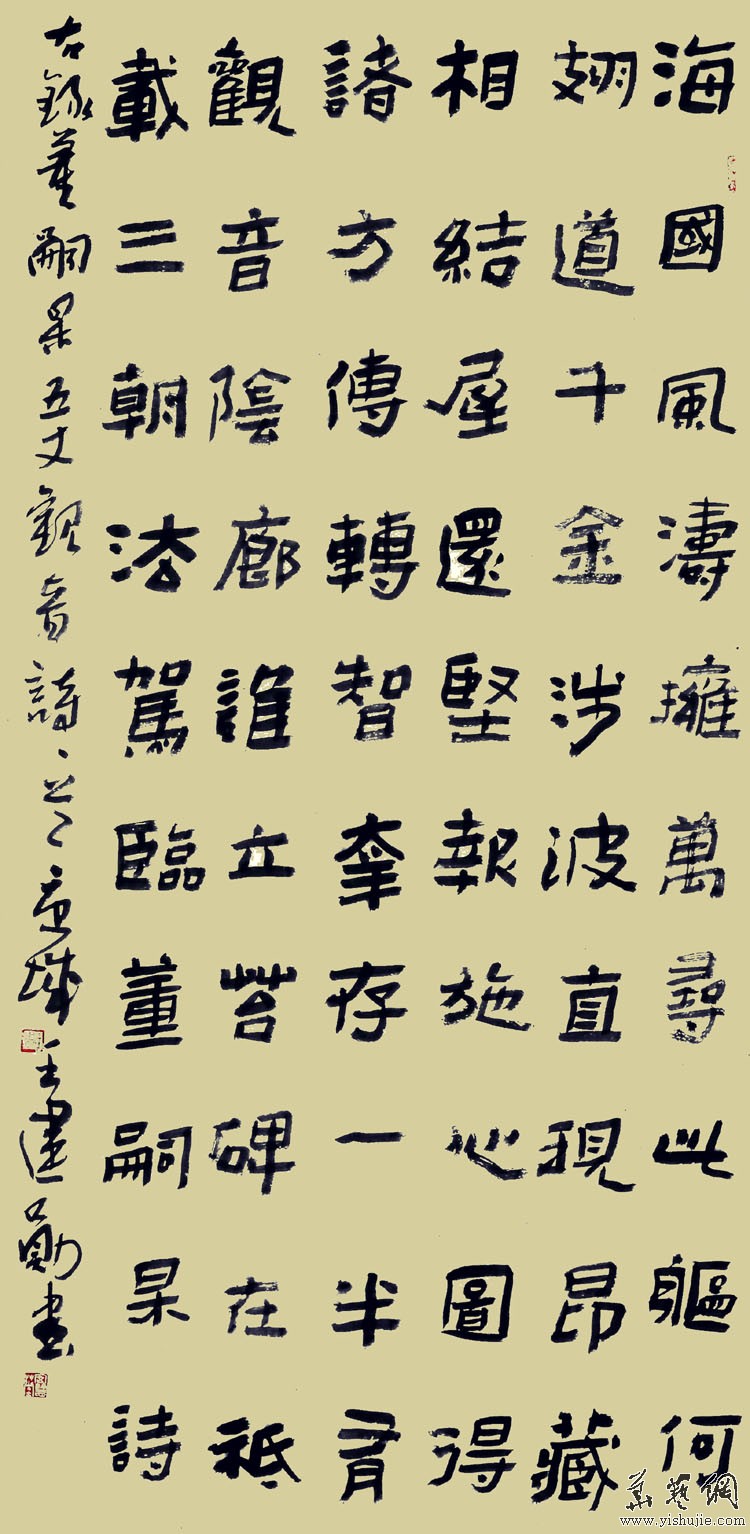 海國風濤擁萬尋此軀何
翅道千金涉波直現昂藏
相結屋還堅報施心圖得
諸方傳轉智奎存一半
觀音陰廊誰立苔碑在祗
載三朝法駕臨董嗣杲詩
右錄董嗣杲五丈觀音詩王建勛書
華藝網
www.yishujie.com